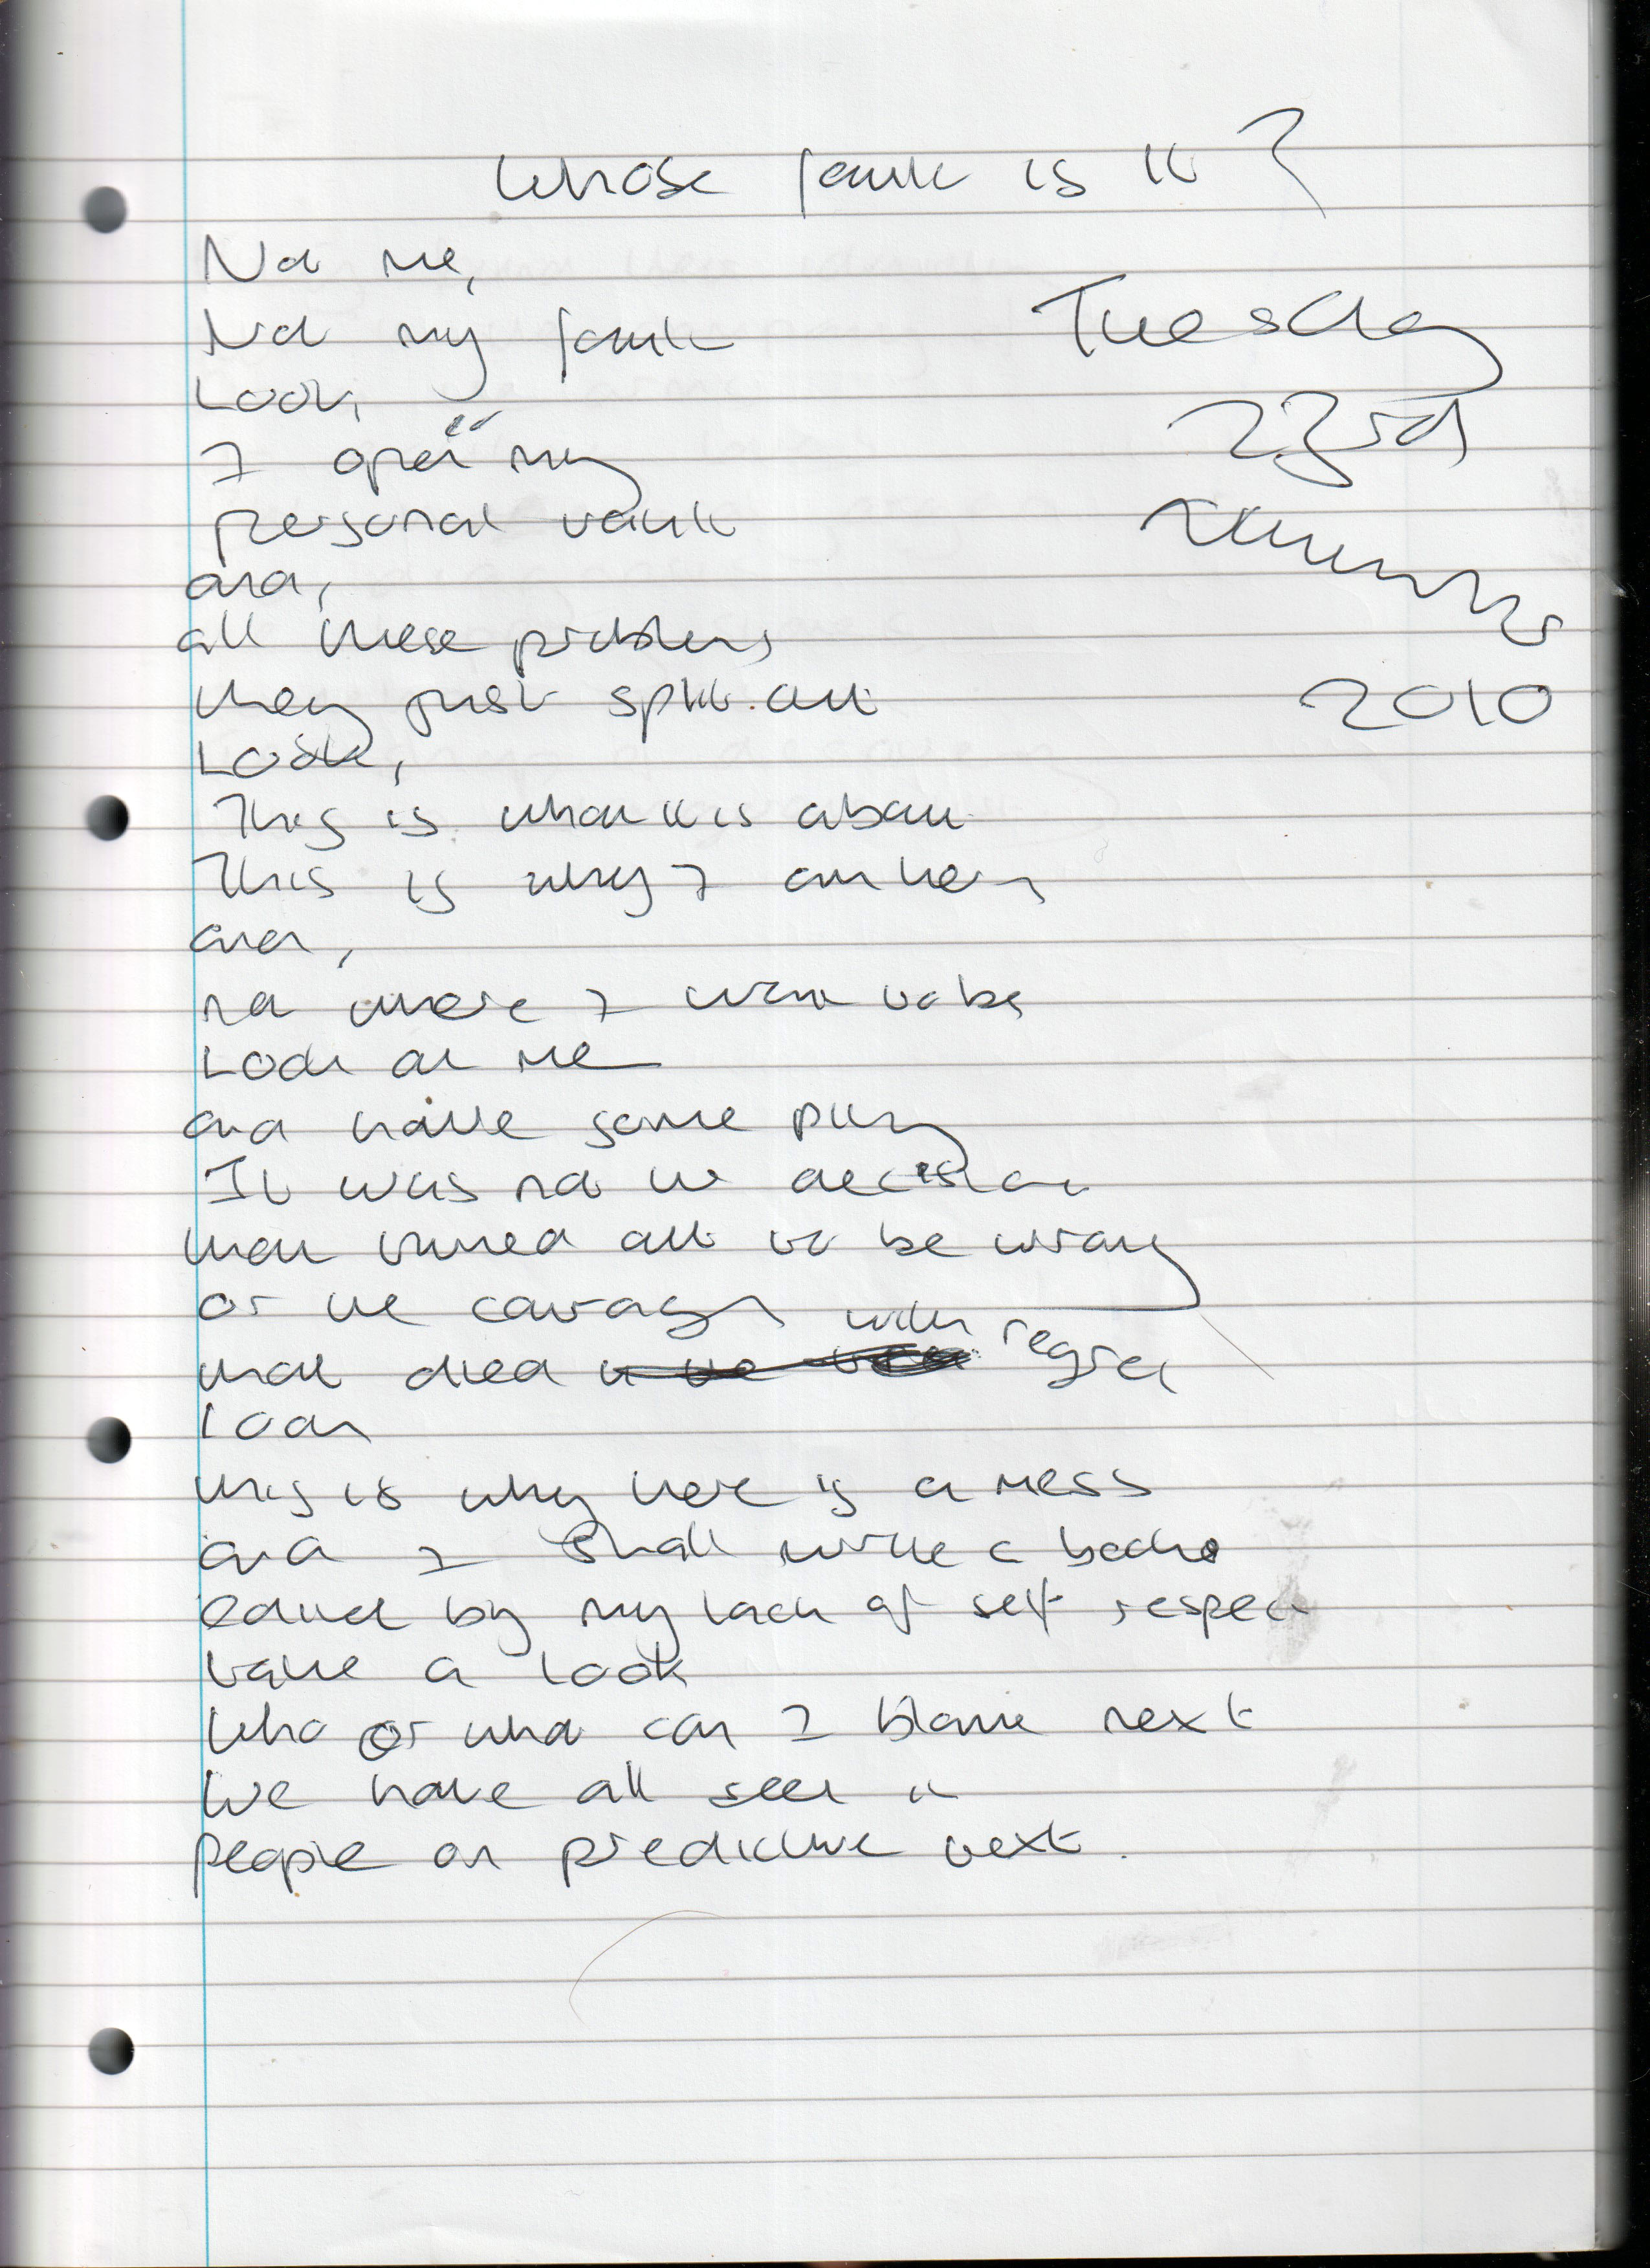 Whose fault is it?
Not me,
Not my fault
Tuesday
Look,
23rd
I open my
personal vault
November
and,
all these problems
2010
they just spill out
Look,
This is what it is about
This is why I am here
and,
not where I want to be
Look at me
and have some pity
It was not the decision
that turned out to be wrong
or the courage
that died with regret
Look
this is why here is a mess
and I shall write a book
edited by my lack of self respect
take a look
Who or what can I blame next
We have all seen it
people on predictive text.